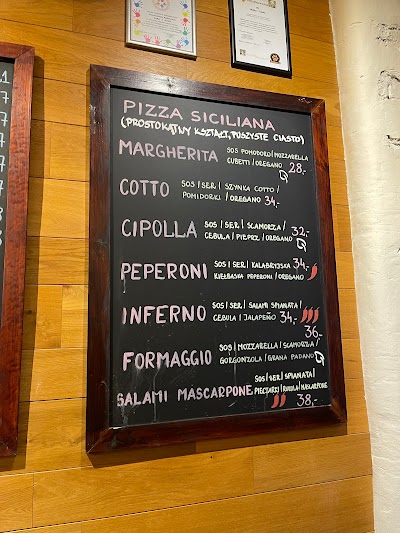 PIZZA SICILIANA
(PROSTOKĄTNY KSZTAŁT, PUSZYSTE CIASTO)
MARGHERITA SOS POMODORO/MOZZARELLA
CUBETTI/OREGANO 28,-
COTTO SOS/SER/ SZYNKA COTTO/
POMIDORKI /OREGANO 34,-
CIPOLLA SOS/SER/ SCAMORZA/ 32,-
CEBULA/PIEPRZ /OREGANO
PEPERONI SOS/SER/ KALABRYJSKA 34,-
KIEŁBASKA PEPERONI /OREGANO
INFERNO SOS/SER/ SALAMI SPIANATA/
CEBULA/JALAPEÑO 34,-
36,-
FORMAGGIO SOS/MOZZARELLA/SCAMORZA/
GORGONZOLA/GRANA PADANO
SALAMI MASCARPONE SOS/SER/ SPIANATA/
PIECZARKI/RUKOLA/MASCARPONE
38,-